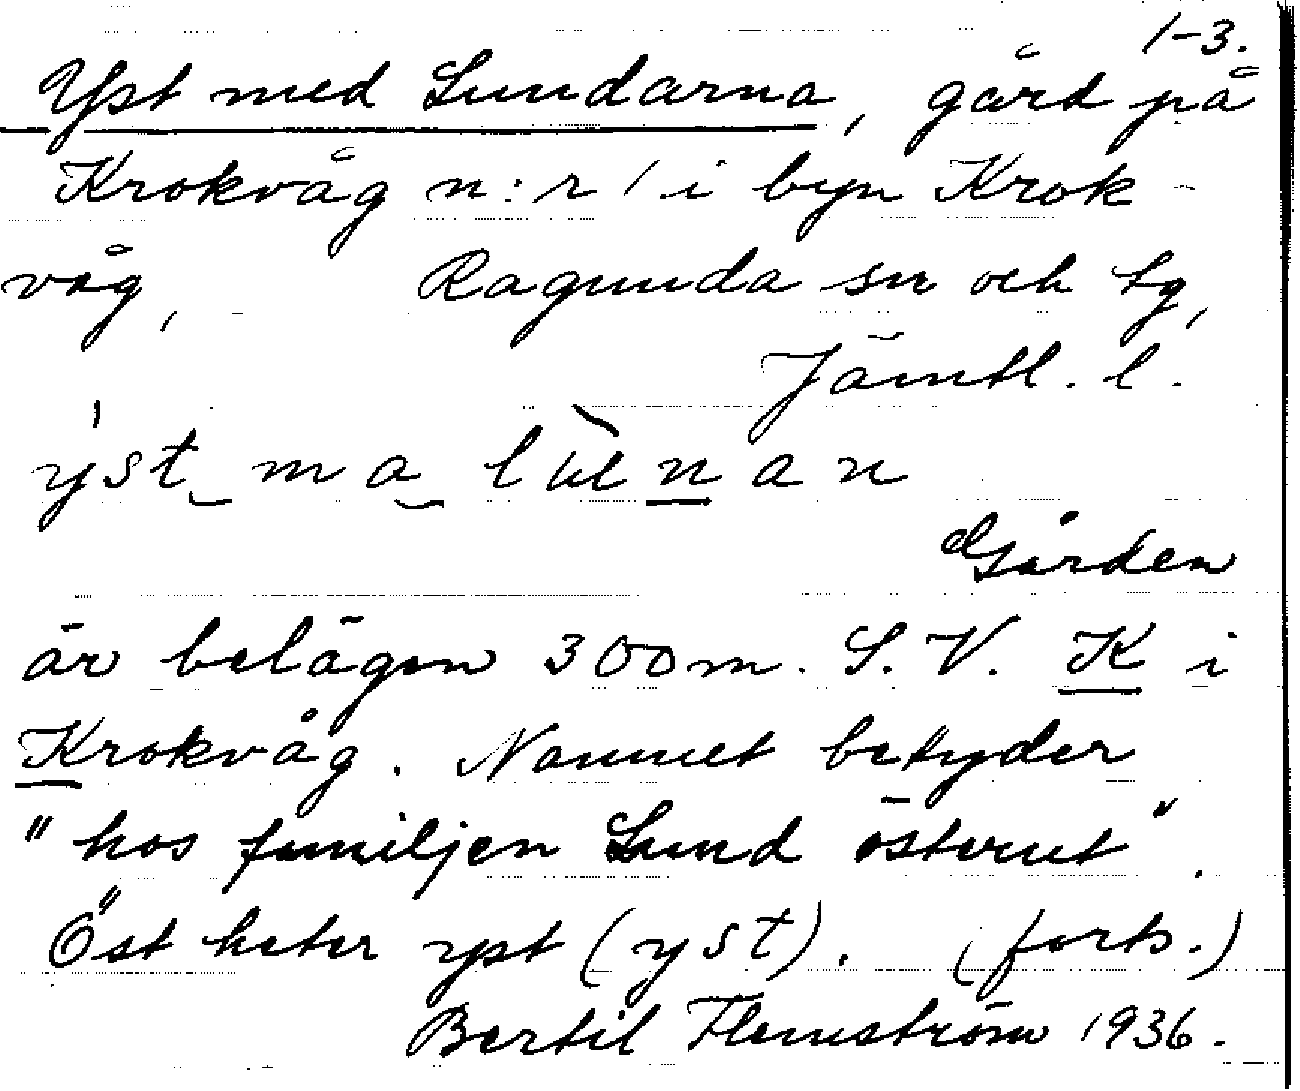 1-3.
Yst med Lundarna, gård på
Krokvåg n:r 1 i byn Krok-
våg, Ragunda sn och tg,
Jämtl. l.
yst ma lunan
Gården
är belägen 300 m. S.V. K i
Krokvåg. Namnet betyder
"hos familjen Lund österut".
Öst heter yst (yst). (forts.)
Bertil Flemström 1936.